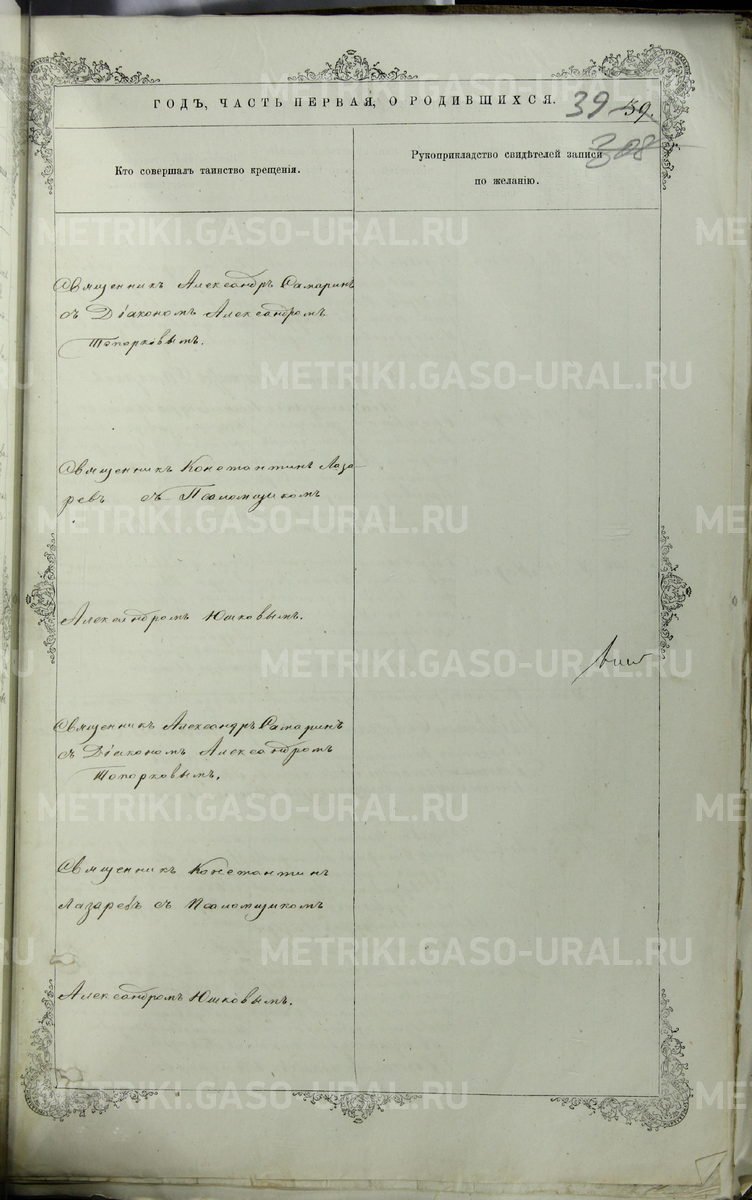 ГОДЪ, ЧАСТЬ ПЕРВАЯ, О РОДИВШИХСЯ.
39
39
308
Кто совершалъ таинство крещенія.
Рукоприкладство свидѣтелей записи
по желанію.
Священникъ Александръ Самаринъ
съ Діакономъ Александромъ
Топорковымъ.
Священникъ Константинъ Лаза-
ревъ съ Псаломщикомъ
Александромъ Юшковымъ.
Священникъ Александръ Самаринъ
съ Діакономъ Александромъ
Топорковымъ.
Священникъ Константинъ
Лазаревъ съ Псаломщикомъ
Александромъ Юшковымъ.
METRIKI.GASO-URAL.RU